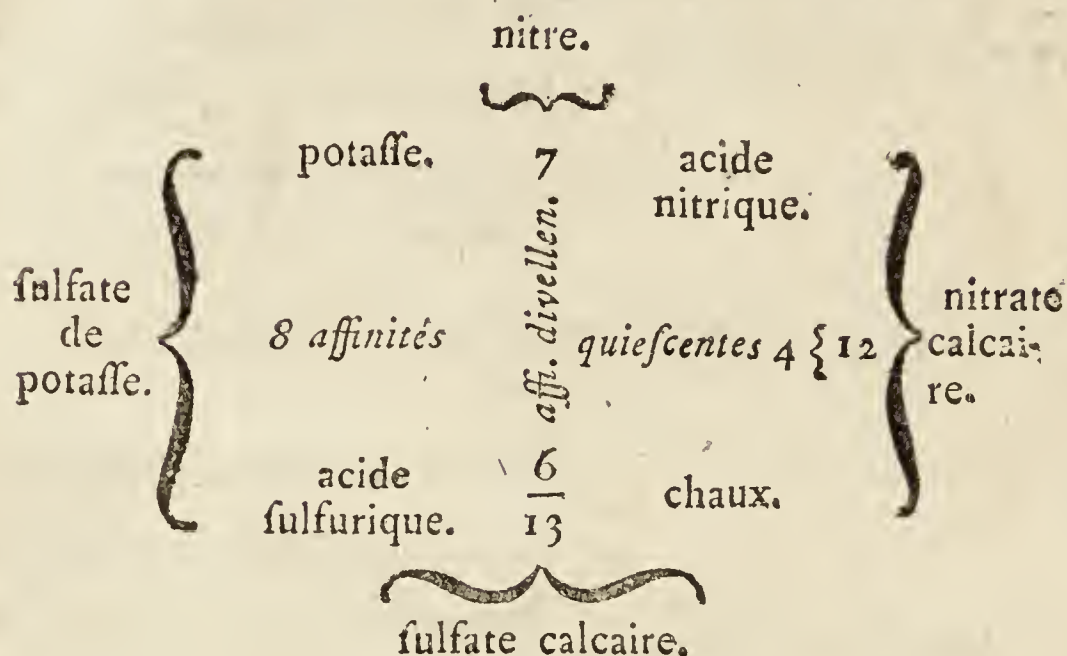 nitre.
potaſſe. 7 acide
nitrique.
ſulfate
de
potaſſe.
8 affinités
affi. divellen.
quieſcentes 4 { 12
nitrate
calcai-
re.
acide
ſulfurique.
6
13
chaux.
ſulfate calcaire.